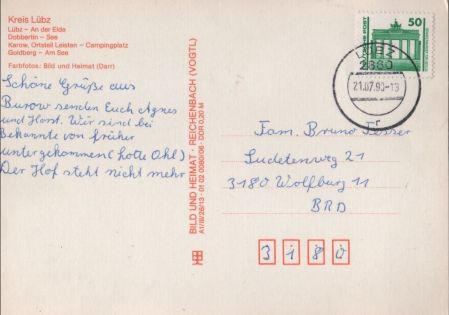 Kreis Lübz
Lübz – An der Elde
Dobbertin – See
Karow, Ortsteil Leisten – Campingplatz
Goldberg – Am See
Farbfotos: Bild und Heimat (Darr)
Schöne Grüße aus
Burow senden Euch Agnes
und Horst. Wir sind bei
Bekannte von früher
untergekommen (Lotte Ohl)
Der Hof steht nicht mehr
BILD UND HEIMAT · REICHENBACH (VOGTL)
A1/III/26/13 · 01 02 0080/06 · DDR 0,20 M
DEUTSCHE POST
50
LÜBZ
2860
21.07.90-13
r
Fam. Bruno
Sudetenweg 21
3180 Wolfburg 11
BRD
3 1 8 0